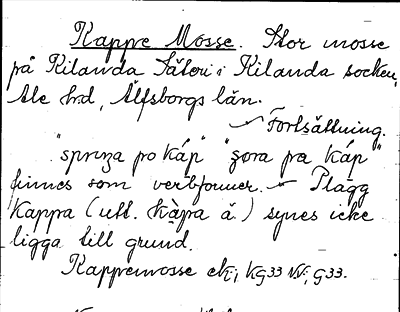 Kappe Mosse. Stor mosse
på Kilanda Säteri i Kilanda socken,
Ale hrd, Älfsborgs län.
Fortsättning.
"spriŋa po káp" "gora pa káp"
finnes som verbformer. Plagg
Kappa (utt. kàpa å.) synes icke
ligga till grund.
Kappemosse ek; KG33 NV; G33.